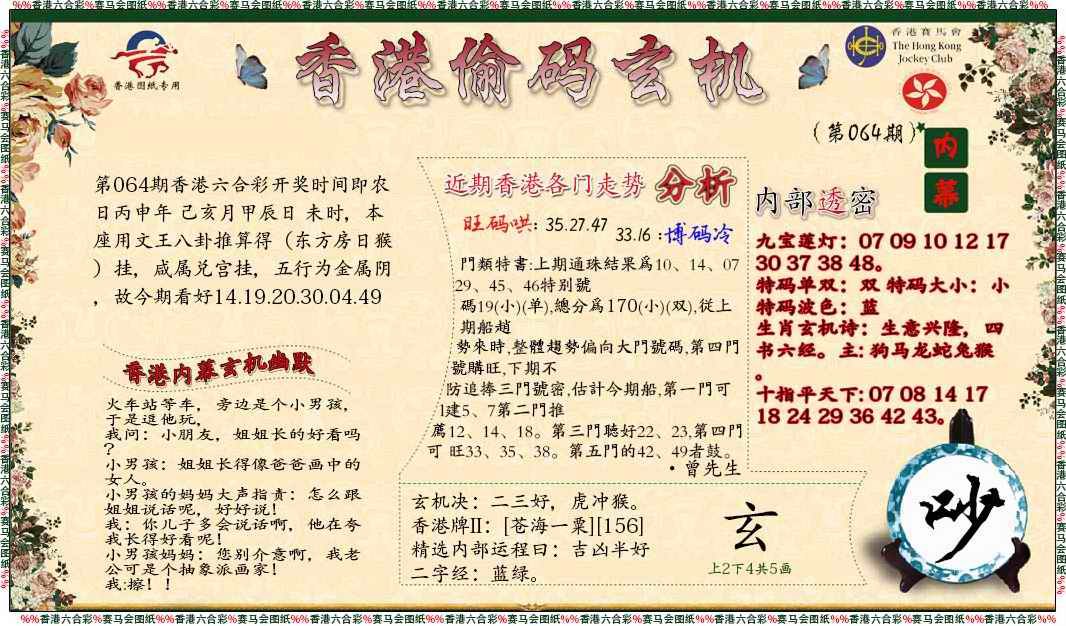 %%香港六合彩%赛马会图纸%%香港六合彩%赛马会图纸%%香港六合彩%赛马会图纸%%香港六合彩%赛马会图纸%%香港六合彩%赛马会图纸%%香港六合彩%赛马会图纸%%香港六合彩%%
香港图纸专用
香港偷码玄机
香港賽馬會
The Hong Kong
Jockey Club
（第064期）
内
幕
第064期香港六合彩开奖时间即农
日丙申年 己亥月甲辰日 未时，本
座用文王八卦推算得（东方房日猴
）挂，咸属兑宫挂，五行为金属阴
，故今期看好14.19.20.30.04.49
香港内幕玄机幽默
火车站等车，旁边是个小男孩，
于是逗他玩，
我问：小朋友，姐姐长的好看吗
？
小男孩：姐姐长得像爸爸画中的
女人。
小男孩的妈妈大声指责：怎么跟
姐姐说话呢，好好说！
我：你儿子多会说话啊，他在夸
我长得好看呢！
小男孩妈妈：您别介意啊，我老
公可是个抽象派画家！
我:擦！！
近期香港各门走势 分析
旺码哄: 35.27.47
33.16 :博码冷
門類特書:上期通珠結果爲10、14、07
29、45、46特别號
碼19(小)(单),總分爲170(小)(双),從上
期船趨
勢來時,整體趨勢偏向大門號碼,第四門
號購旺,下期不
防追捧三門號密,估計今期船,第一門可
1建5、7第二門推
薦12、14、18。第三門聽好22、23,第四門
可 旺33、35、38。第五門的42、49者鼓。
·曾先生
内部透密
九宝莲灯：07 09 10 12 17
30 37 38 48。
特码单双：双 特码大小：小
特码波色：蓝
生肖玄机诗：生意兴隆，四
书六经。主: 狗马龙蛇兔猴
。
十指平天下: 07 08 14 17
18 24 29 36 42 43。
玄机决：二三好，虎冲猴。
香港牌II：[苍海一粟][156]
精选内部运程曰：吉凶半好
二字经：蓝绿。
玄
上2下4共5画
吵
%%香港六合彩%赛马会图纸%%香港六合彩%赛马会图纸%%香港六合彩%赛马会图纸%%香港六合彩%赛马会图纸%%香港六合彩%赛马会图纸%%香港六合彩%赛马会图纸%%香港六合彩%%